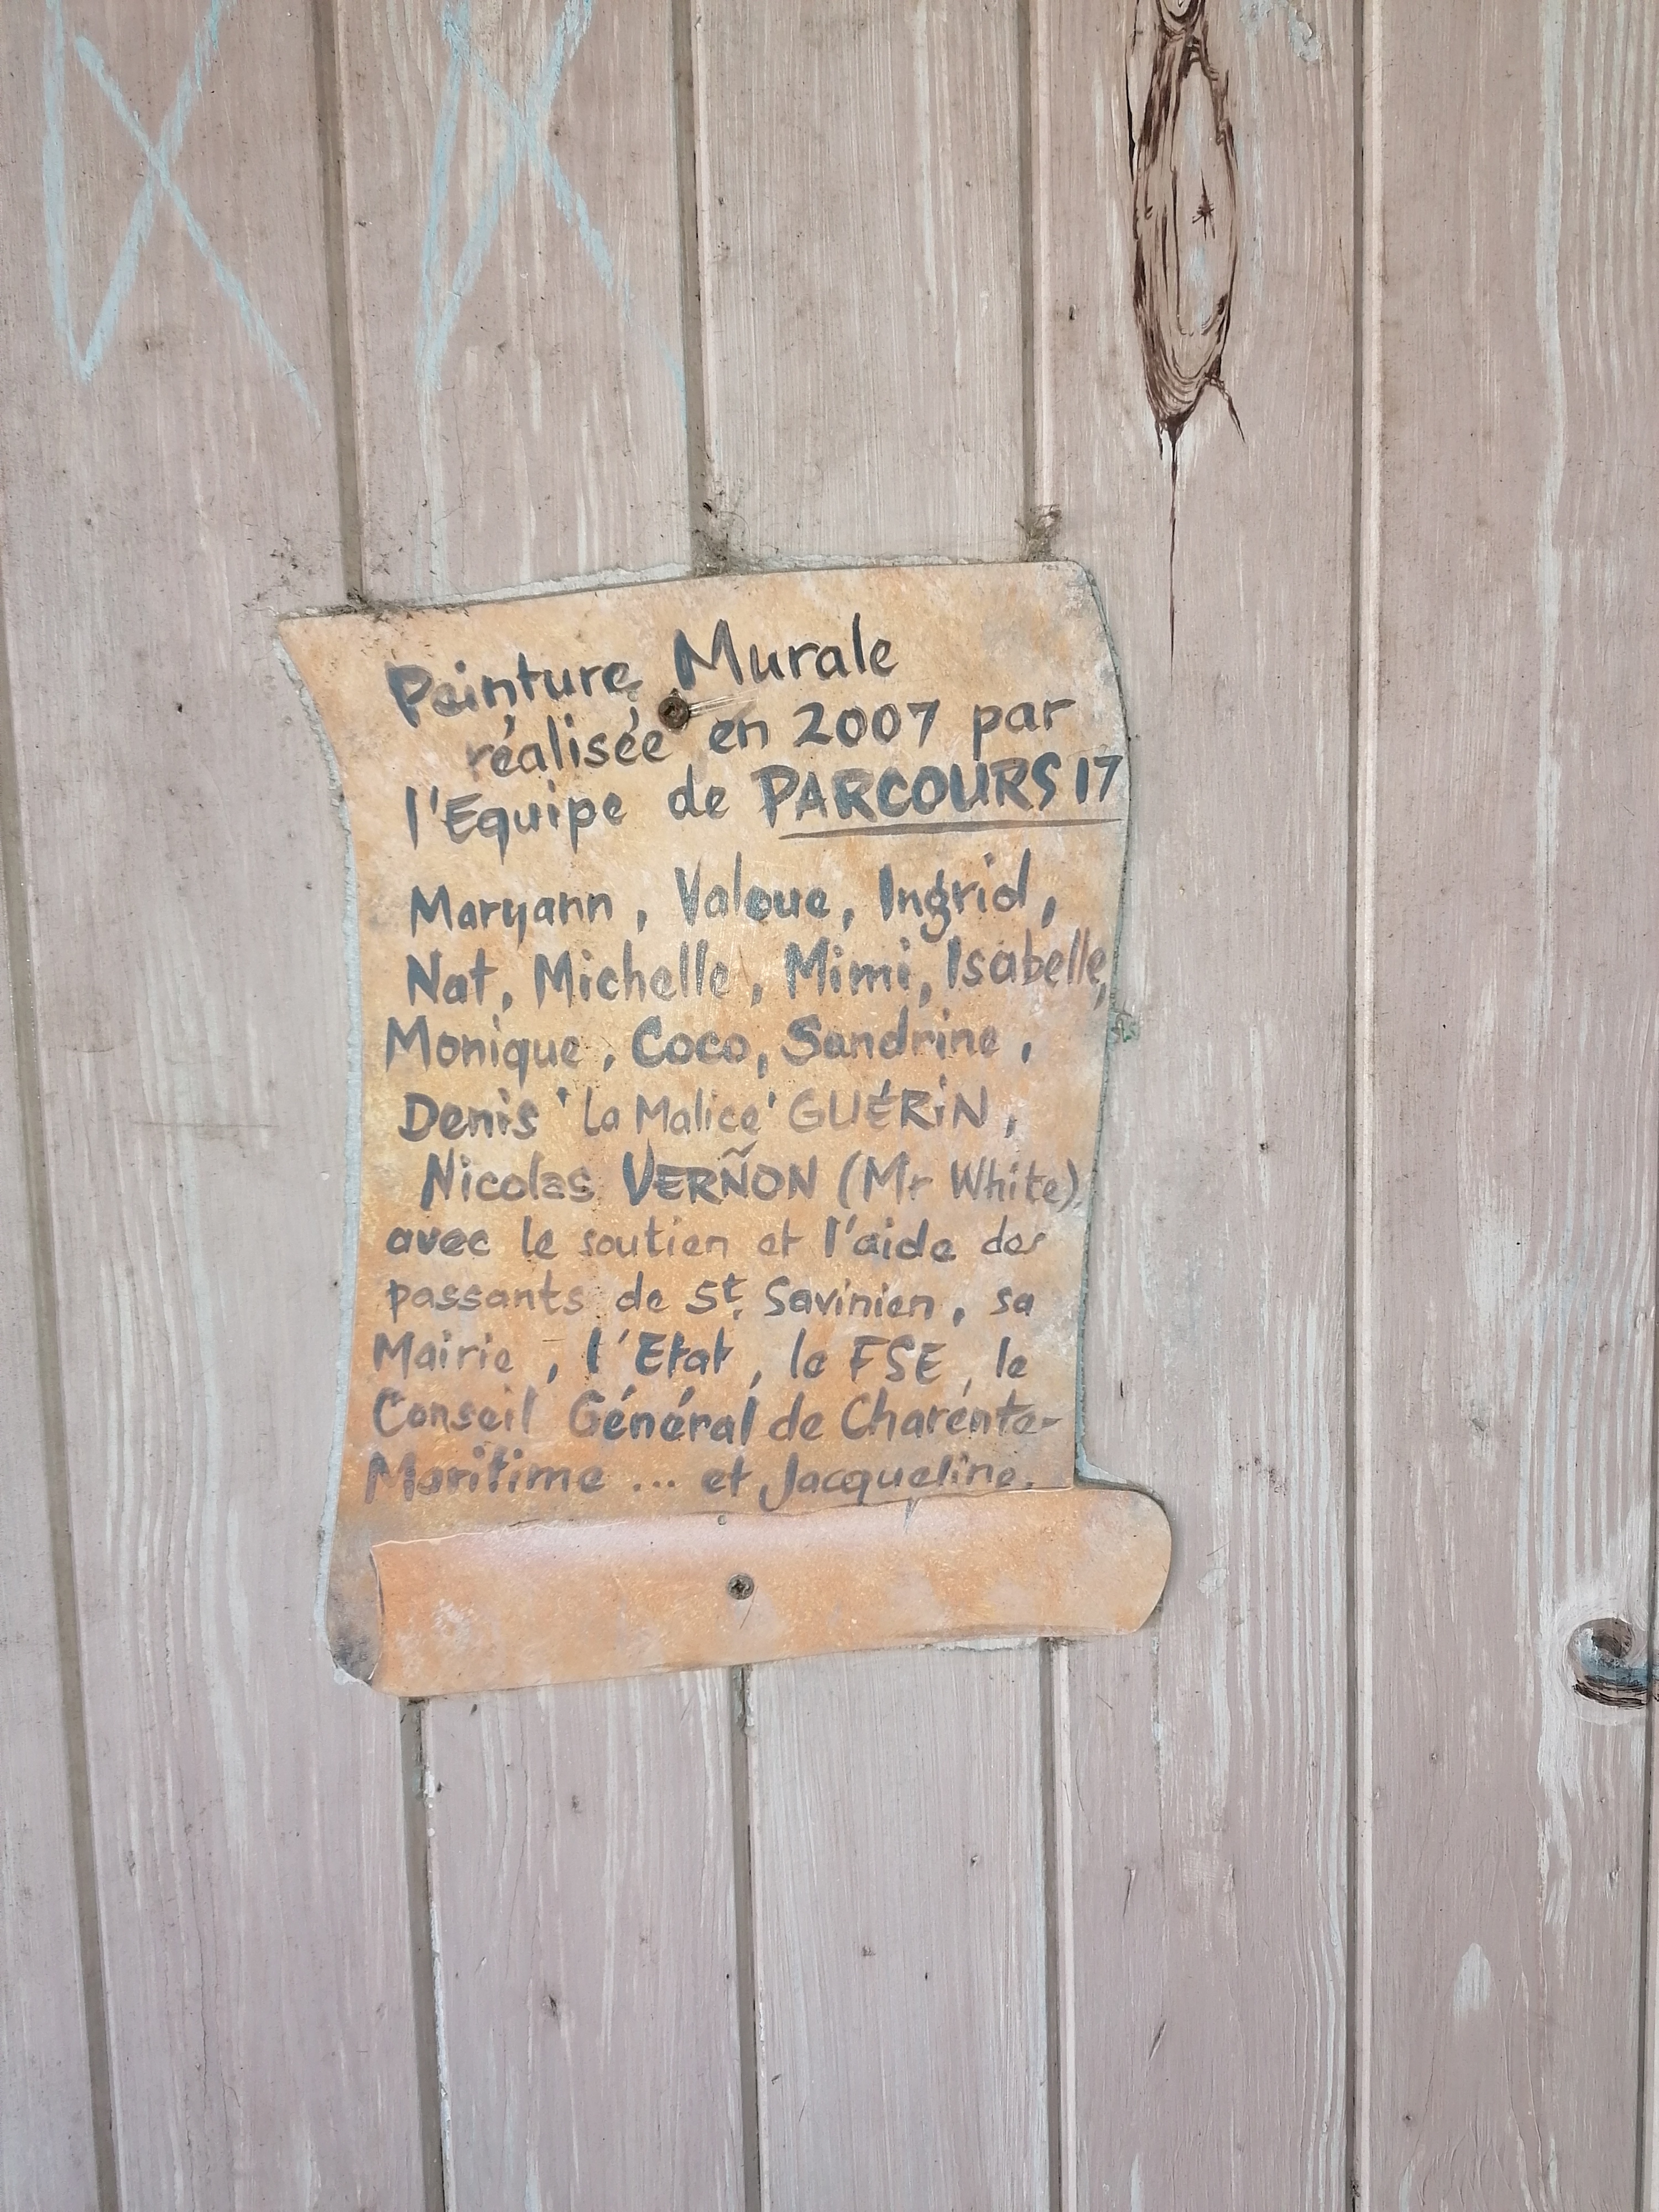 Peinture Murale
réalisée en 2007 par
l'Equipe de PARCOURS 17
Maryann, Valoue, Ingrid,
Nat, Michelle, Mimi, Isabelle,
Monique, Coco, Sandrine,
Denis 'la Malice' GUÉRiN,
Nicolas VERÑON (Mr White),
avec le soutien et l'aide des
passants de St. Savinien, sa
Mairie, l'Etat, le FSE, le
Conseil Général de Charente-
Maritime ... et Jacqueline.